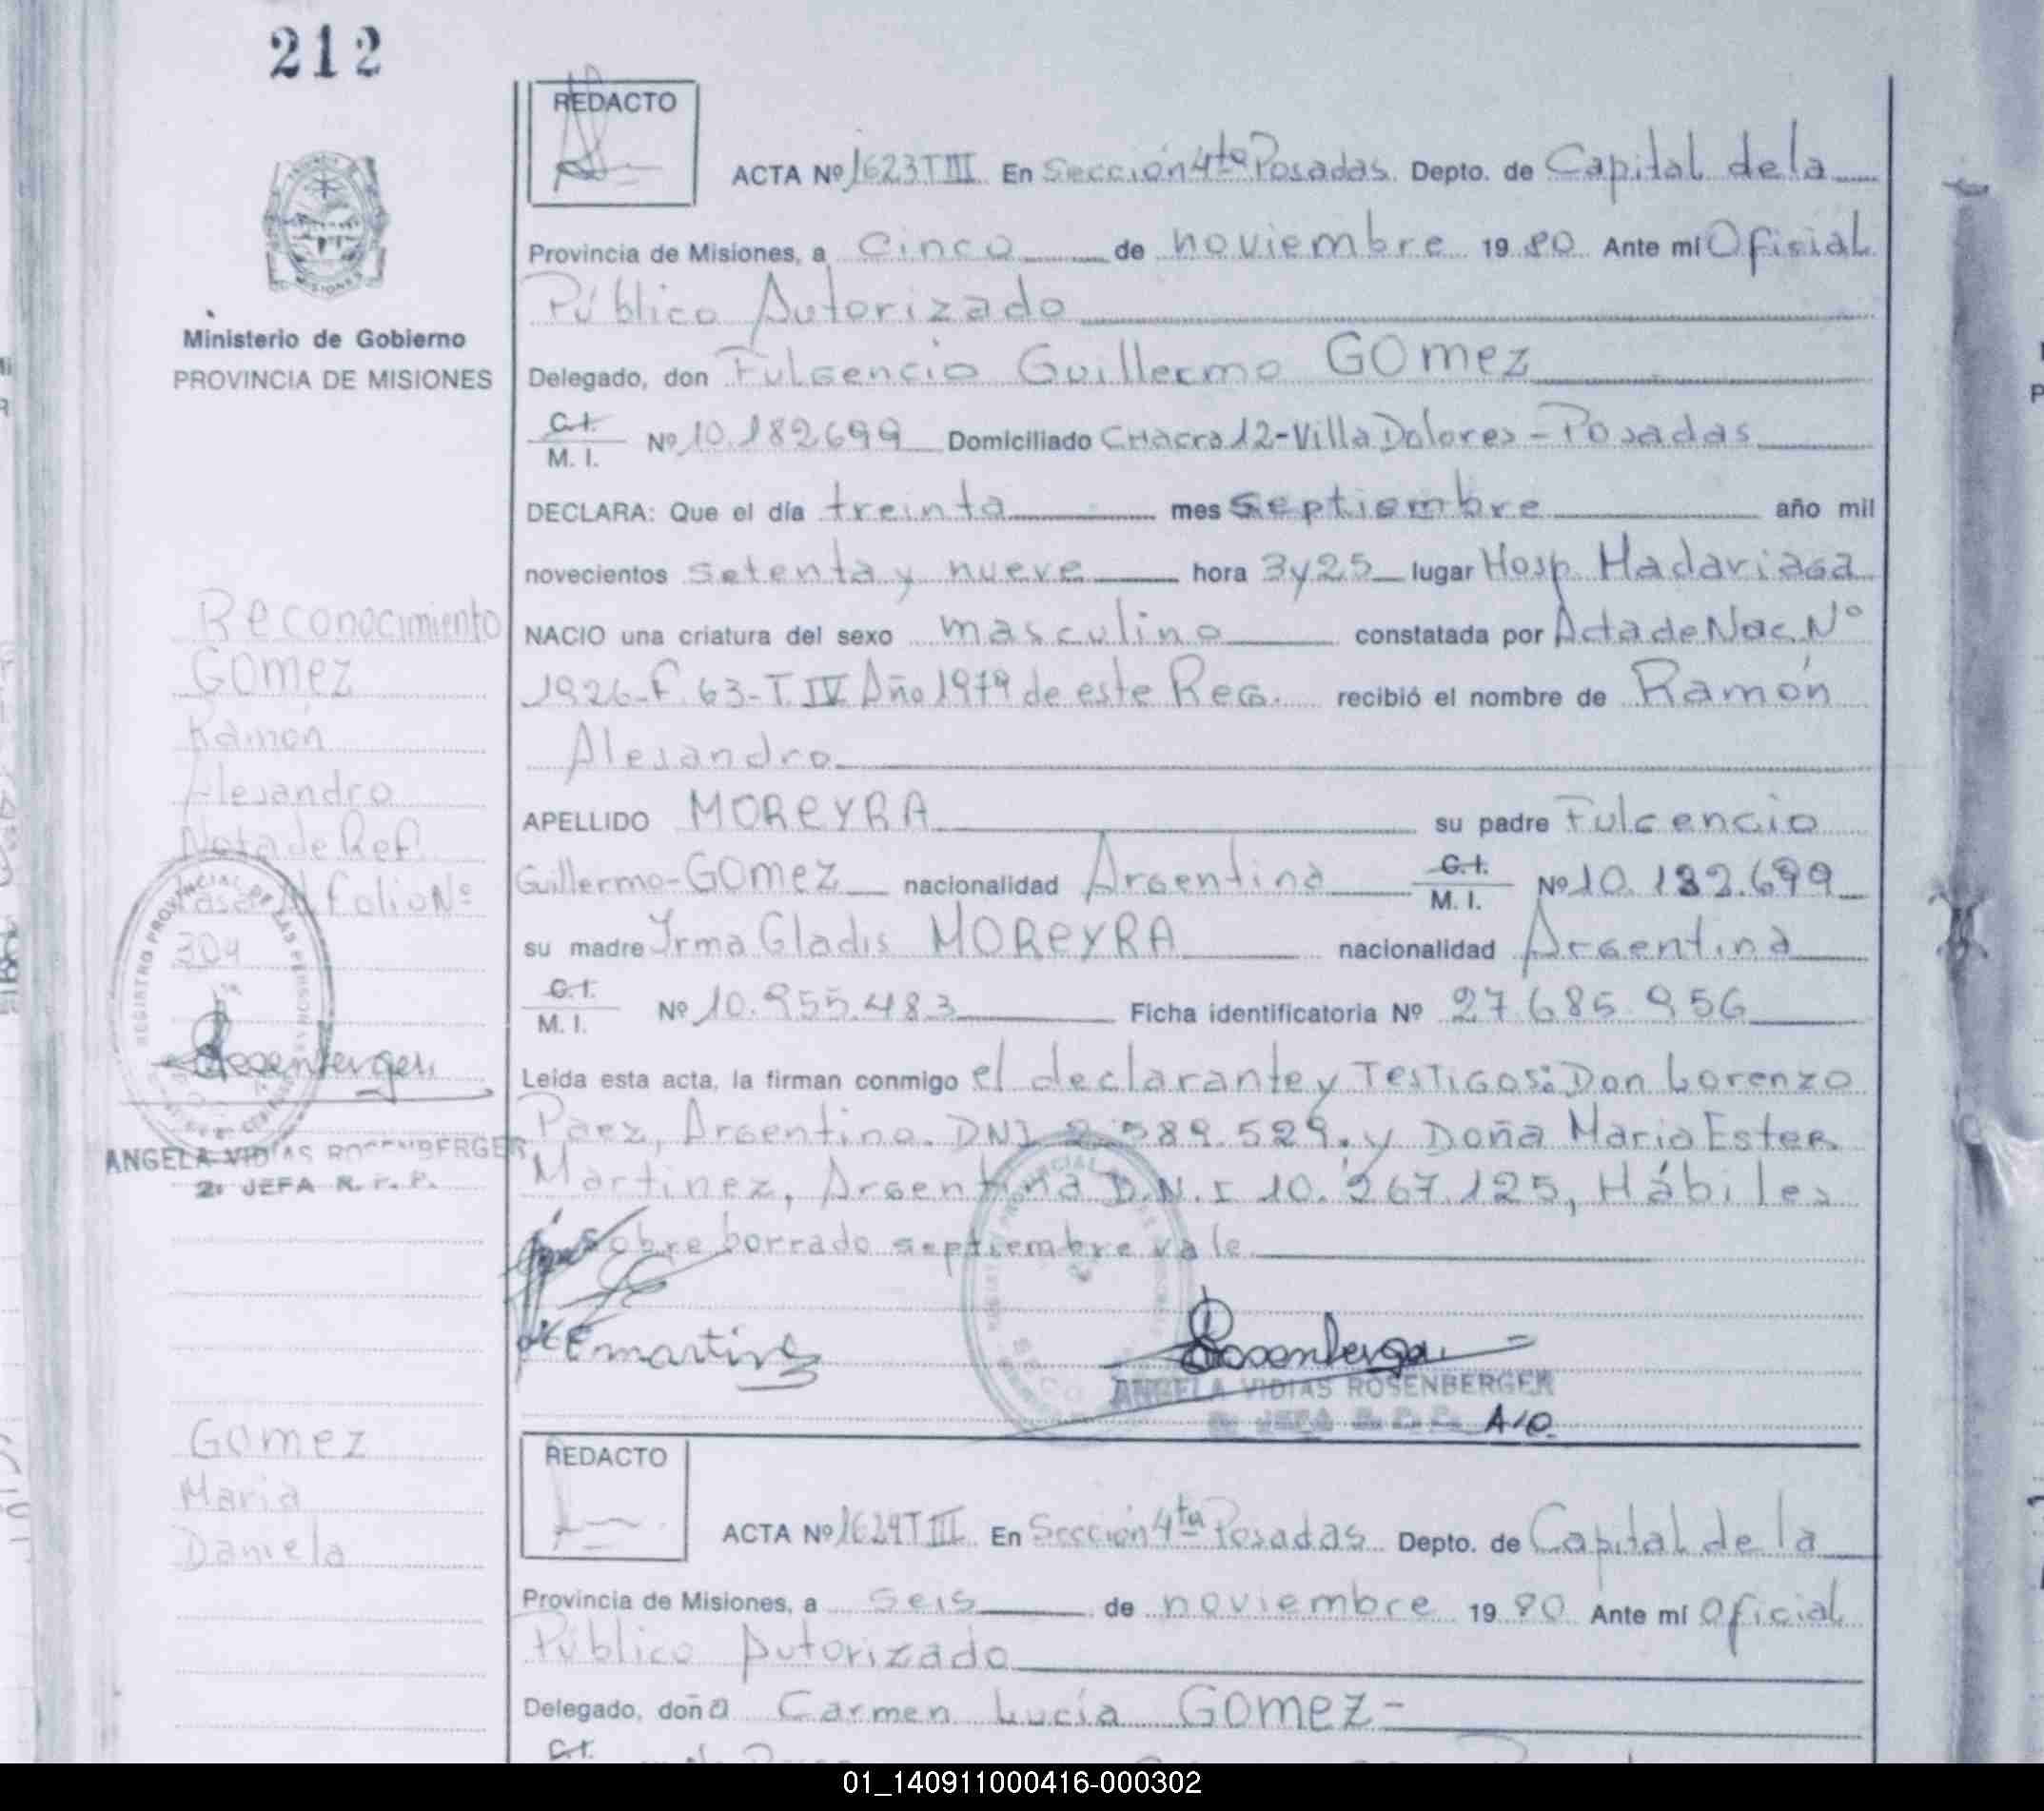 212
REDACTO
ACTA Nº 1623 T III En Sección 4ta Posadas Depto. de Capital de la
Provincia de Misiones, a Cinco de noviembre 19 80 Ante mí Oficial
Público Autorizado
Ministerio de Gobierno
PROVINCIA DE MISIONES
Delegado, don Fulgencio Guillermo GOmez
C.I.
M. I. Nº 10.182699 Domiciliado CHacra 12-Villa Dolores - Posadas
DECLARA: Que el día treinta mes septiembre año mil
novecientos setenta y nueve hora 3y25 lugar Hosp. Madariaga
NACIO una criatura del sexo masculino constatada por Acta de Nac. Nº
1926-F. 63-T. IV Año 1979 de este Reg. recibió el nombre de Ramón
Alejandro
APELLIDO MOREYRA su padre Fulgencio
Guillermo-GOmez nacionalidad Argentina C.I. M. I. Nº 10.182.699
su madre Irma Gladis MOREYRA nacionalidad Argentina
C.I.
M. I. Nº 10.955.483 Ficha identificatoria Nº 27.685.956
Leída esta acta, la firman conmigo el declarante y TesTigos: Don Lorenzo
Paez, Argentino. DNI 2.589.529. y Doña Maria Ester
Martinez, Argentina D.N.I 10.267.125, Hábiles
sobre borrado septiembre vale
Reconocimiento
GOmez
Ramón
Alejandro
Nota de Ref.
Pasa Al Folio Nº
304
REGISTRO PROVINCIAL DE LAS PERSONAS
Rosenberger
ANGELA VIDIAS ROSENBERGER
2º JEFA R. P. P.
E martinez
Rosenberger
ANGELA VIDIAS ROSENBERGER
2º JEFA R. P. P. A/C.
REDACTO
Gomez
Maria
Daniela
ACTA Nº 1624 T III En Sección 4ta Posadas Depto. de Capital de la
Provincia de Misiones, a seis de noviembre 19 80 Ante mí Oficial
Público Autorizado
Delegado, doña Carmen Lucía GOmez-
C.I.
01_140911000416-000302